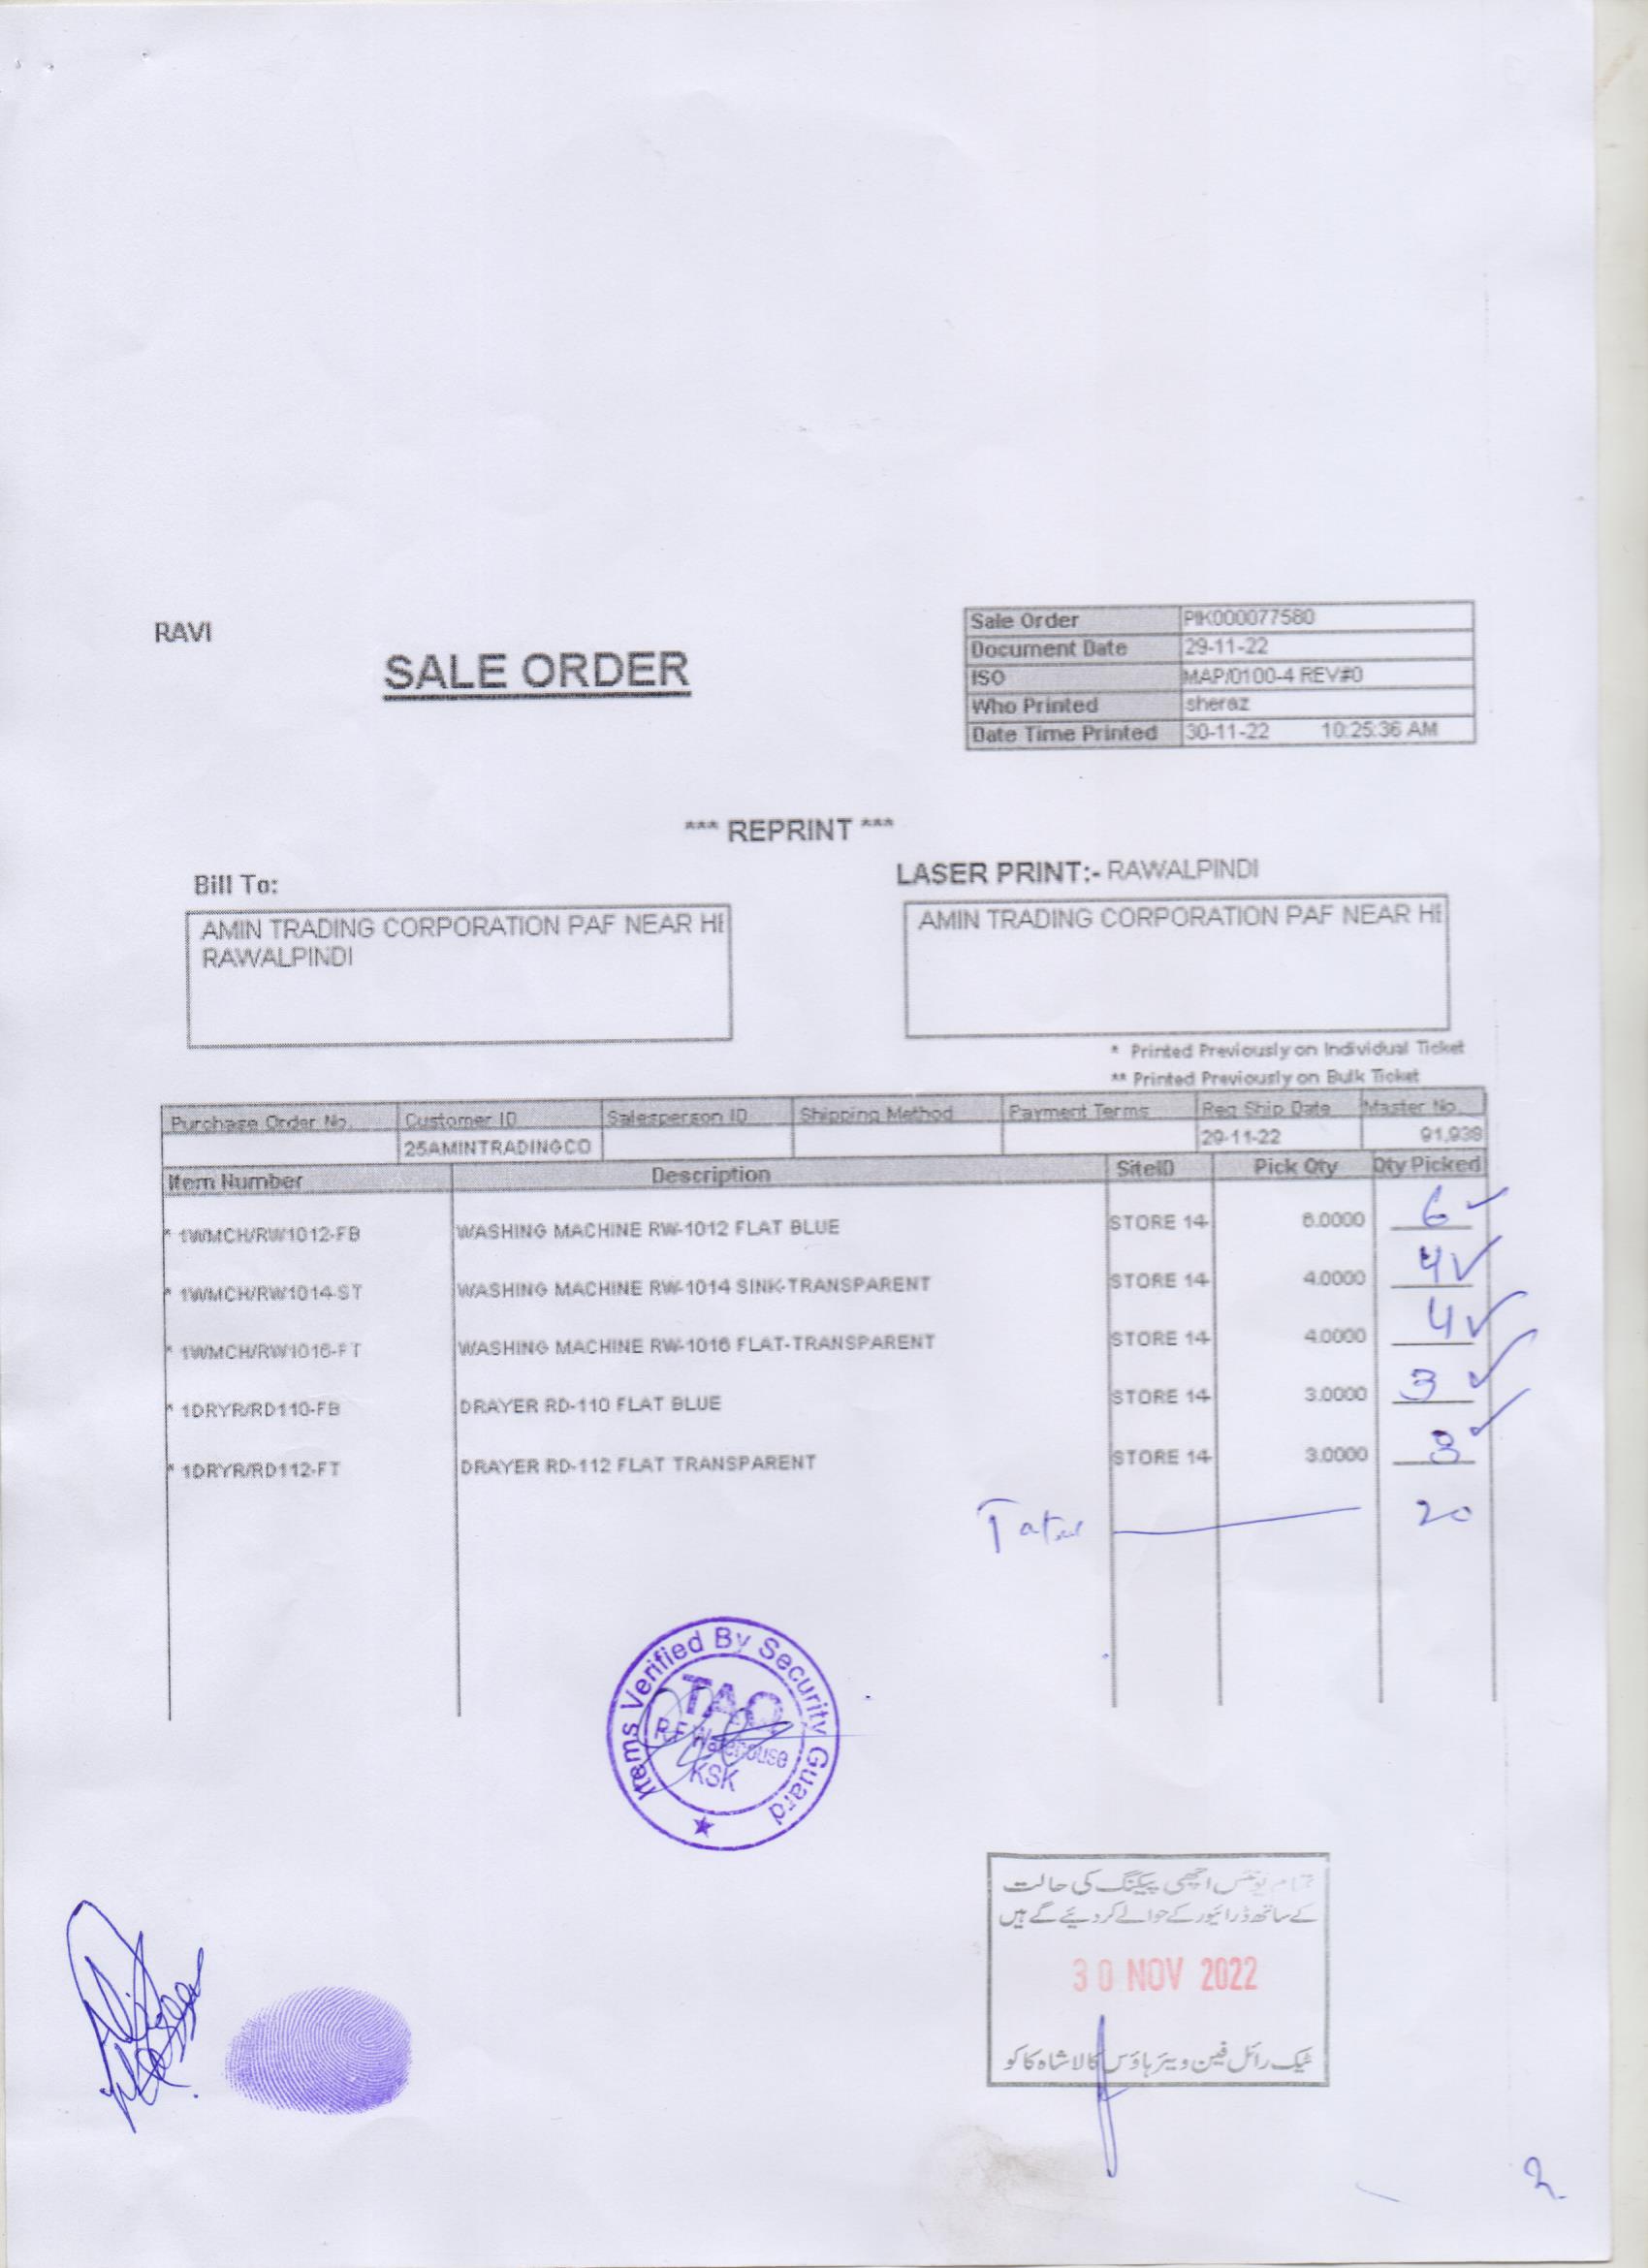 RAVI
SALE ORDER
Sale Order PIK000077580
Document Date 29-11-22
ISO MAP/0100-4 REV#0
Who Printed sheraz
Date Time Printed 30-11-22 10:25:36 AM
*** REPRINT ***
Bill To:
LASER PRINT:- RAWALPINDI
AMIN TRADING CORPORATION PAF NEAR HE
RAWALPINDI
AMIN TRADING CORPORATION PAF NEAR HE
* Printed Previously on Individual Ticket
** Printed Previously on Bulk Ticket
Purchase Order No. Customer ID Salesperson ID Shipping Method Payment Terms Req Ship Date Master No.
25AMINTRADINGCO 29-11-22 91,938
Item Number Description SiteID Pick Qty Qty Picked
* 1WMCH/RW1012-FB WASHING MACHINE RW-1012 FLAT BLUE STORE 14 6.0000 6 ✓
* 1WMCH/RW1014-ST WASHING MACHINE RW-1014 SINK-TRANSPARENT STORE 14 4.0000 4 ✓
* 1WMCH/RW1016-FT WASHING MACHINE RW-1016 FLAT-TRANSPARENT STORE 14 4.0000 4 ✓
* 1DRYR/RD110-FB DRAYER RD-110 FLAT BLUE STORE 14 3.0000 3 ✓
* 1DRYR/RD112-FT DRAYER RD-112 FLAT TRANSPARENT STORE 14 3.0000 3 ✓
Total 20
Items Verified By Security Guard
RF Warehouse
KSK
تمام یونٹس اچھی پیکنگ کی حالت
کے ساتھ ڈرائیور کے حوالے کر دیئے گئے ہیں
30 NOV 2022
ٹیک رائل فین ویئر ہاؤس کالا شاہ کاکو